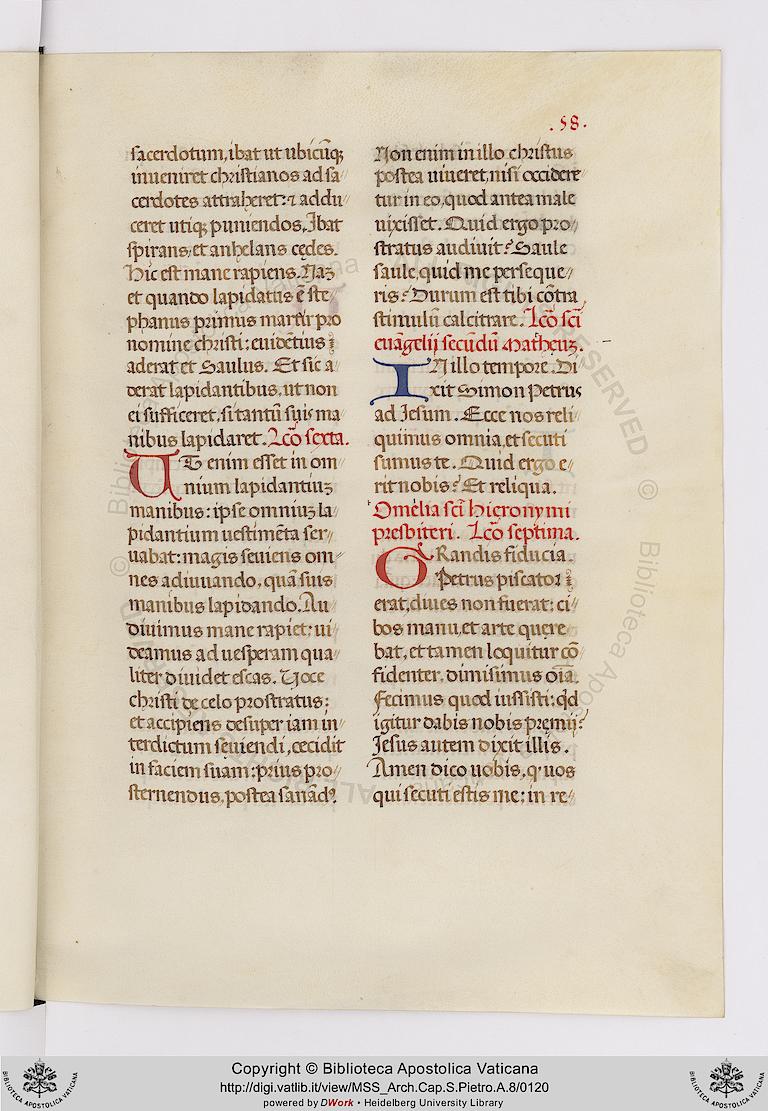 .58.
sacerdotum, ibat ut ubicūq;
inueniret christianos ad sa
cerdotes attraheret: ⁊ addu
ceret utiq; puniendos. Ibat
spirans, et anhelans cędes.
Hic est mane rapiens. Naz
et quando lapidatus ē ste
phanus primus martir pro
nomine christi: euidētius
aderat et Saulus. Et sic a
derat lapidantibus, ut non
ei sufficeret, si tantū suis ma
nibus lapidaret. Lcō sexta.
UT enim esset in om
nium lapidantiuz
manibus: ipse omniuz la
pidantium uestimēta ser
uabat: magis seuiens om
nes adiuuando, quā suis
manibus lapidando. Au
diuimus mane rapiet: ui
deamus ad uesperam qua
liter diuidet escas. Uoce
christi de celo prostratus:
et accipiens desuper iam in
terdictum seuiendi, cecidit
in faciem suam: prius pro
sternendus, postea sanād⁹.
Non enim in illo christus
postea uiueret, nisi occidere
tur in eo, quod antea male
uixisset. Quid ergo pro
stratus audiuit? Saule
saule, quid me perseque
ris? Durum est tibi cōtra
stimulū calcitrare. Lcō scī
euāgelij secūdū Matheuz.
IN illo tempore. Di
xit Simon Petrus
ad Iesum. Ecce nos reli
quimus omnia, et secuti
sumus te. Quid ergo e
rit nobis? Et reliqua.
Omelia scī Hieronymi
presbiteri. Lcō septima.
GRandis fiducia.
Petrus piscator
erat, diues non fuerat: ci
bos manu, et arte quere
bat, et tamen loquitur cō
fidenter, dimisimus oīa.
Fecimus quod iussisti: qd
igitur dabis nobis premij?
Iesus autem dixit illis.
Amen dico uobis, q uos
qui secuti estis me: in re
Copyright © Biblioteca Apostolica Vaticana
http://digi.vatlib.it/view/MSS_Arch.Cap.S.Pietro.A.8/0120
powered by DWork • Heidelberg University Library
BIBLIOTECA APOSTOLICA VATICANA
BIBLIOTECA APOSTOLICA VATICANA